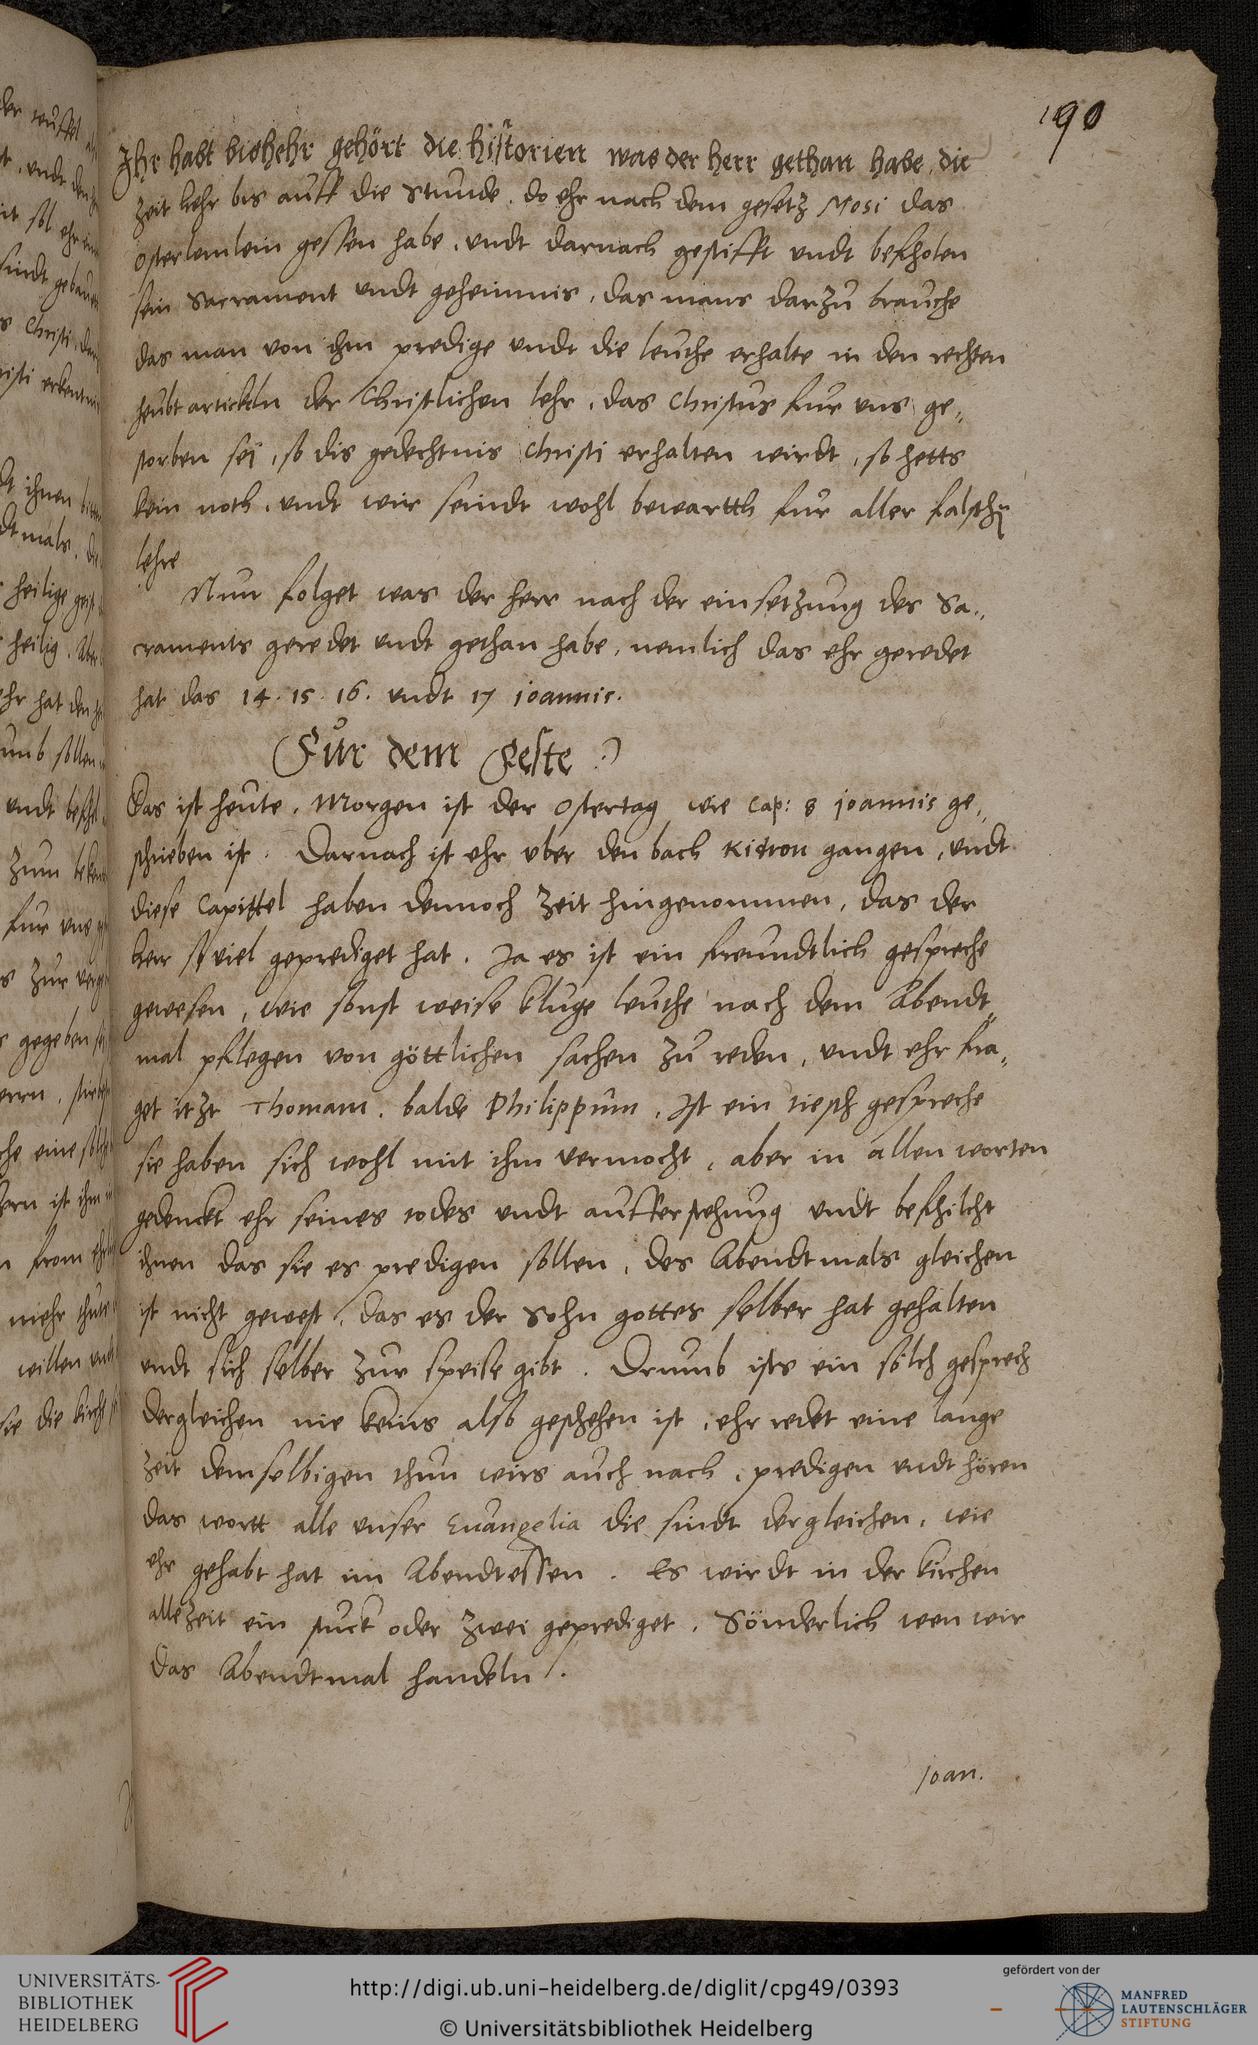 190
Ihr habt bishehr gehört die historien was der herr gethan habe, die
zeit hehr bis auff die stunde, do ehr nach dem gesetz Mosi das
osterlemlein gessen habe, undt darnach gestifft undt befholen
sein Sacrament undt geheimnis, das mans darzu brauche
das man von ihm predige undt die leuthe erhalte in den rechten
heubtartickeln der Christlichen lehr, das Christus fur uns ge,,
storben seÿ, so dis gedechtnis Christi erhalten wirdt, so hetts
kein noth, undt wir seindt wohl bewartth fur aller falschẽ
lehre
Nun folget was der herr nach der einsetzung des Sa,,
craments geredet undt gethan habe, nemlich das ehr geredet
hat das 14. 15. 16. undt 17 Joannis.
Fur dem Feste
Das ist heute, Morgen ist der Ostertag wie cap: 8 Joannis ge,,
schrieben ist. Darnach ist ehr uber den bach Kidron gangen, undt
diese Capittel haben dennoch zeit hingenommen, das der
herr so viel geprediget hat. Ja es ist ein freundtlich gespreche
gewesen, wie sonst weise kluge leuthe nach dem Abendt,,
mal pflegen von göttlichen sachen zu reden, undt ehr fra,,
get itzt Thomam, balde Philippum, Ist ein tisch gespreche
sie haben sich wohl mit ihm vermocht, aber in allen worten
gedenckt ehr seines todes undt aufferstehung undt befhilcht
ihnen das sie es predigen sollen, des Abendtmals gleichen
ist nicht gewest, das es der Sohn gottes selber hat gehalten
undt sich selber zur speise gibt. Drumb ists ein solch gesprech
dergleichen nie keins also geschehen ist, ehr redet eine lange
zeit demselbigen thun wirs auch nach, predigen undt hören
das wortt alle unser Euangelia die sindt dergleichen, wie
ehr gehabt hat im Abendtessen. Es wirdt in der kirchen
allezeit ein stuck oder zwei geprediget, Sönderlich wen wir
das Abendtmal handeln.
Joan.
UNIVERSITÄTS-
BIBLIOTHEK
HEIDELBERG
http://digi.ub.uni-heidelberg.de/diglit/cpg49/0393
© Universitätsbibliothek Heidelberg
gefördert von der
MANFRED
LAUTENSCHLÄGER
STIFTUNG